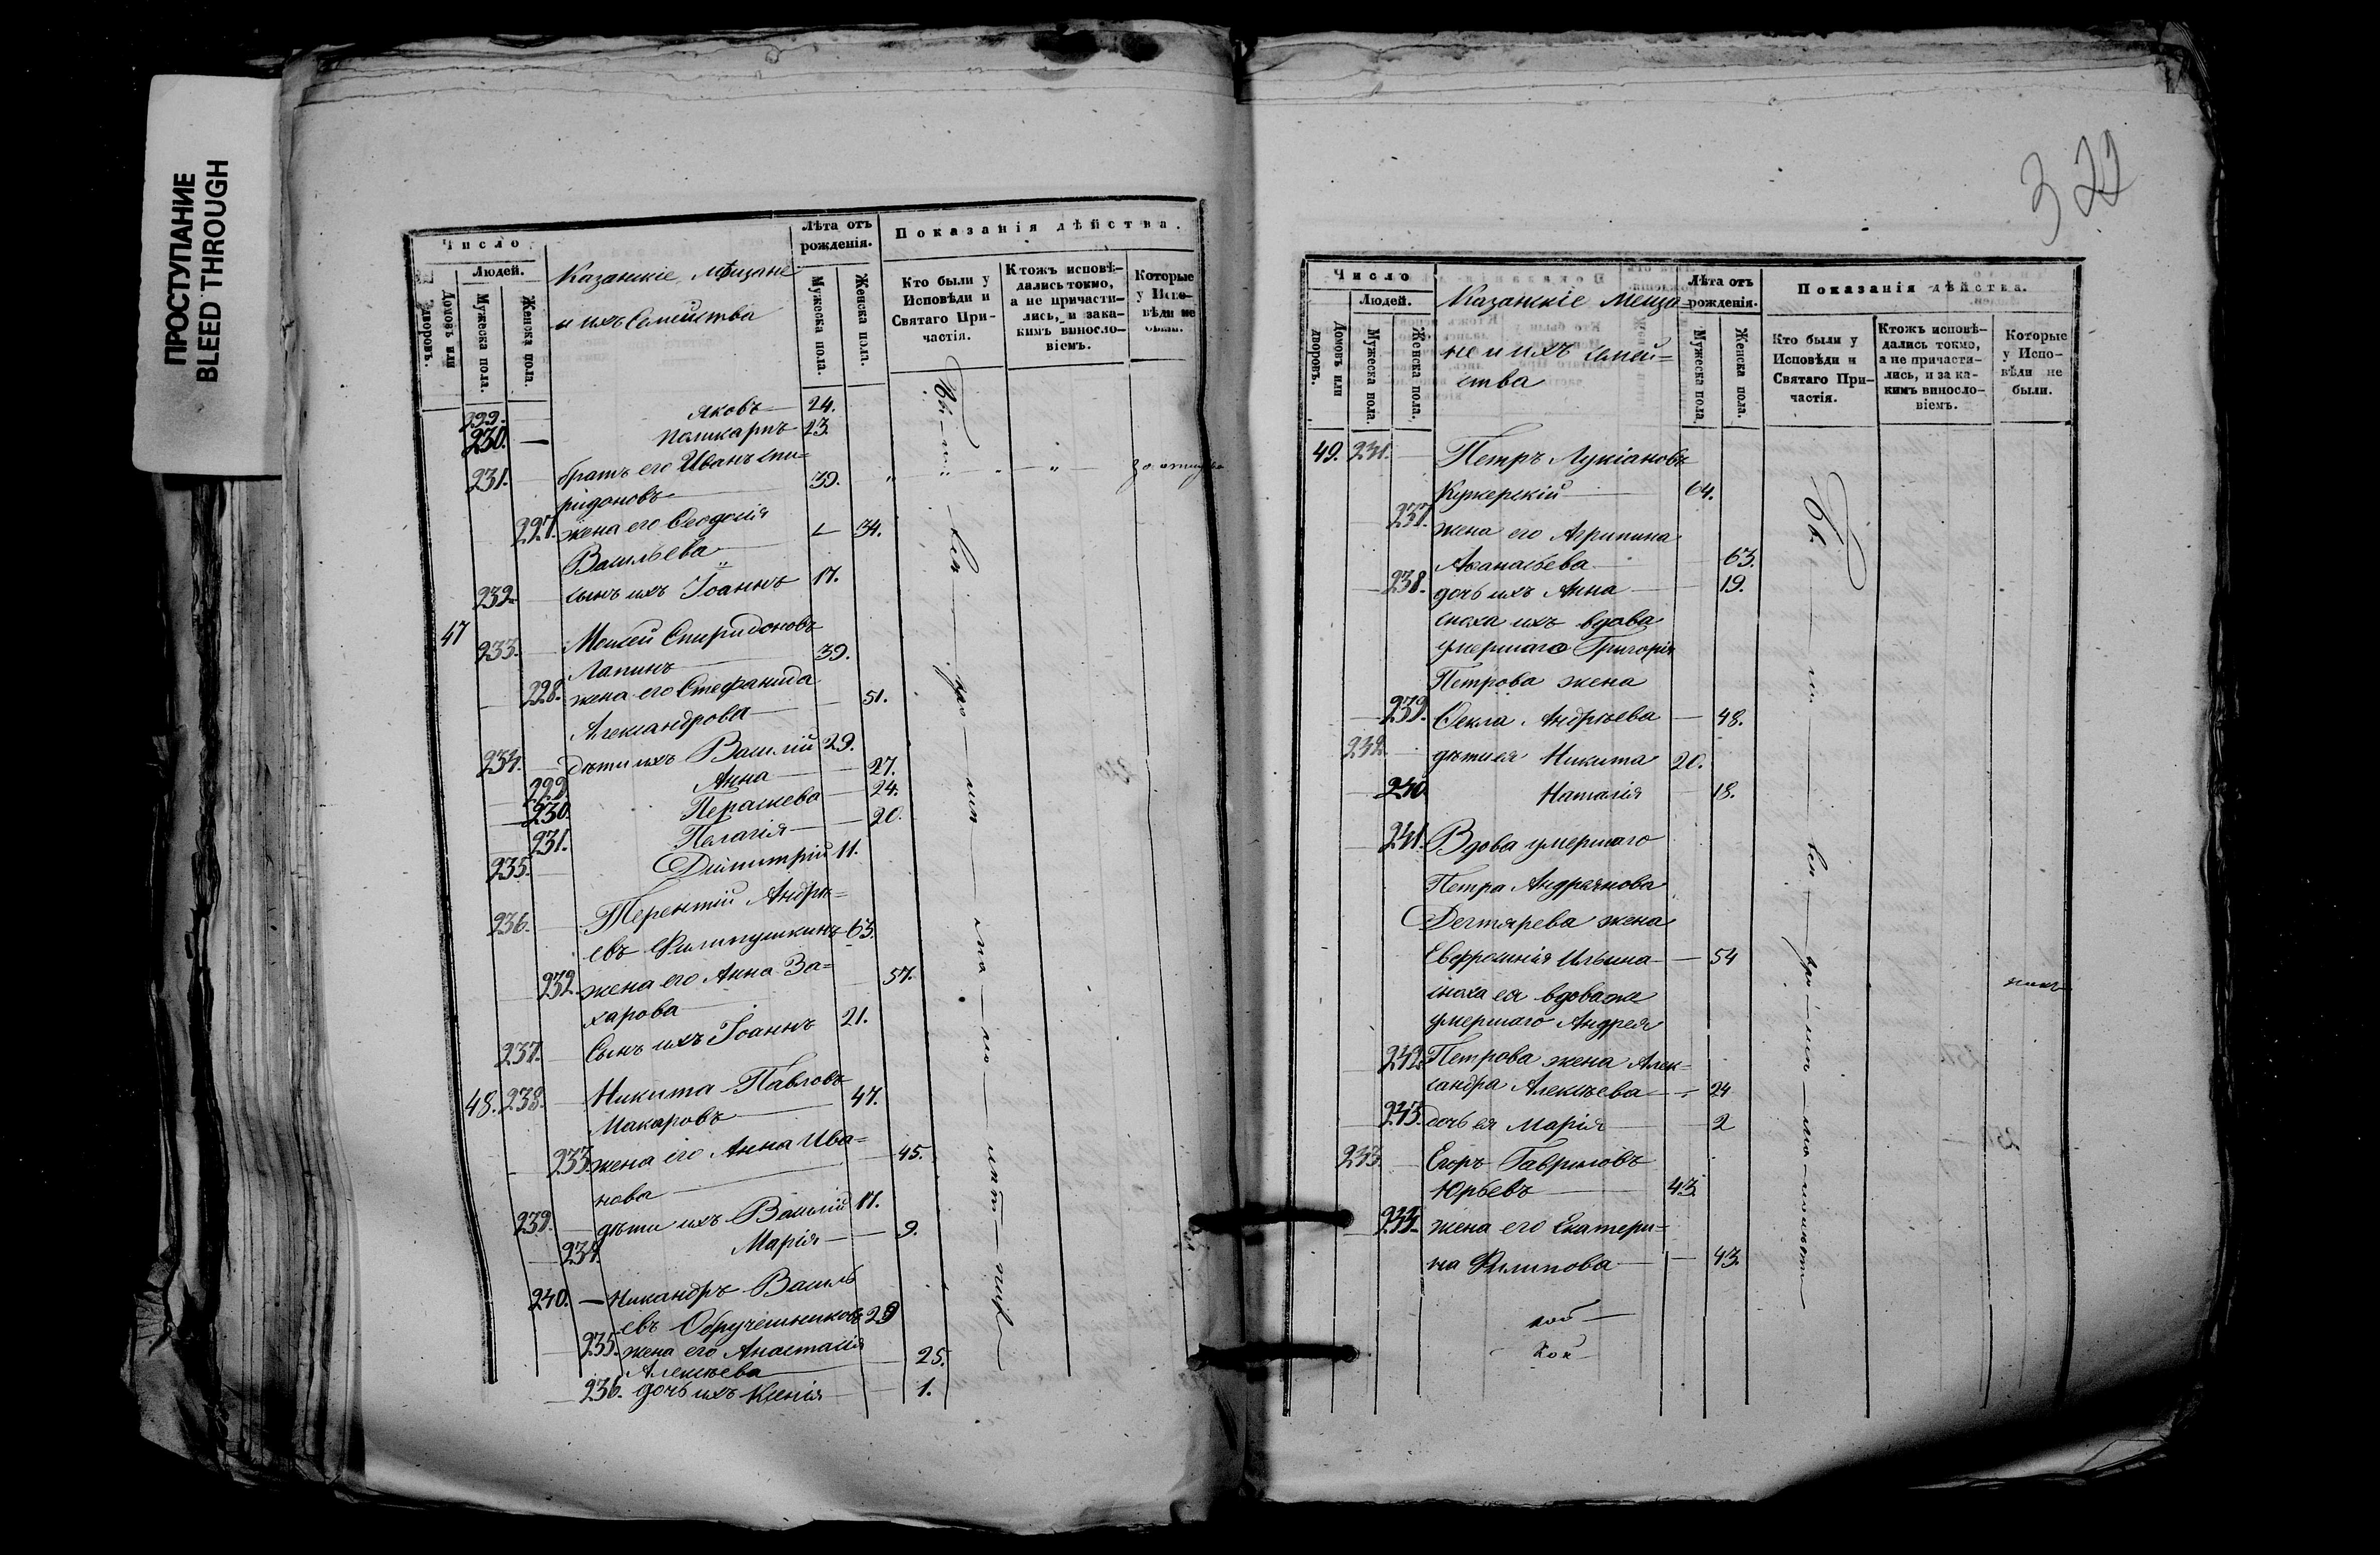 ПРОСТУПАНИЕ
BLEED THROUGH
Число
Людей.
Домовъ или дворовъ.
Мужеска пола.
Женска пола.
Казанскіе Мѣщане
и ихъ Семейства
Лѣта отъ рожденія.
Мужеска пола.
Женска пола.
Показанія дѣйства.
Кто были у Исповѣди и Святаго Причастія.
Ктожъ исповѣдались токмо, а не причастились, и за какимъ винословіемъ.
Которые у Исповѣди не были.
229. — Яковъ — 24.
230. — Поликарпъ 23.
231. братъ его Иванъ Спи=
ридоновъ — 39.
227. жена его Ѳеодосія
Васильева — 34.
232. сынъ ихъ Іоаннъ 17.
47 233. Моисей Спиридоновъ
Лапинъ — 39.
228. жена его Стефанида
Александрова — 51.
234. дѣти ихъ Василій 29.
229. Анна — 27.
230. Параскева — 24.
231. Пелагія — 20.
235. Димитрій 11.
236. Терентій Андре=
евъ Филипушкинъ 63.
232. жена его Анна За=
харова 57.
237. Сынъ ихъ Іоаннъ 21.
48. 238. Никита Павловъ
Макаровъ — 47.
233. жена его Анна Ива=
нова — 45.
239. дѣти ихъ Василій 17.
234. Марія — 9.
240. — Никандръ Василь
евъ Обручешниковъ 29
235. жена его Анастасія
Алексѣева — 25.
236. дочь ихъ Ксенія — 1.
322
Число
Людей.
Домовъ или дворовъ.
Мужеска пола.
Женска пола.
Казанскіе Меща=
не и ихъ семей=
ства
Лѣта отъ рожденія.
Мужеска пола.
Женска пола.
Показанія дѣйства.
Кто были у Исповѣди и Святаго Причастія.
Ктожъ исповѣдались токмо, а не причастились, и за какимъ винословіемъ.
Которые у Исповѣди не были.
49. 231. — Петръ Лукіановъ
Кукерскій — 64.
237. жена его Агрипина
Аѳанасьева — 63.
238. дочь ихъ Анна — 19.
сноха ихъ вдова
умершаго Григорія
Петрова жена
239. Ѳекла Андреева — 48.
232. дѣти ея Никита 20.
240 Наталія — 18.
241. Вдова умершаго
Петра Андреянова
Дегтярева жена
Евфросинія Ильина — 54
сноха ея вдова же
умершаго Андрея
242. Петрова жена Алек=
сандра Алексѣева — 24
243. дочь ея Марія — 2
233. — Егоръ Гавриловъ
Юрьевъ — 43.
244. жена его Екатери=
на Филипова — 43.